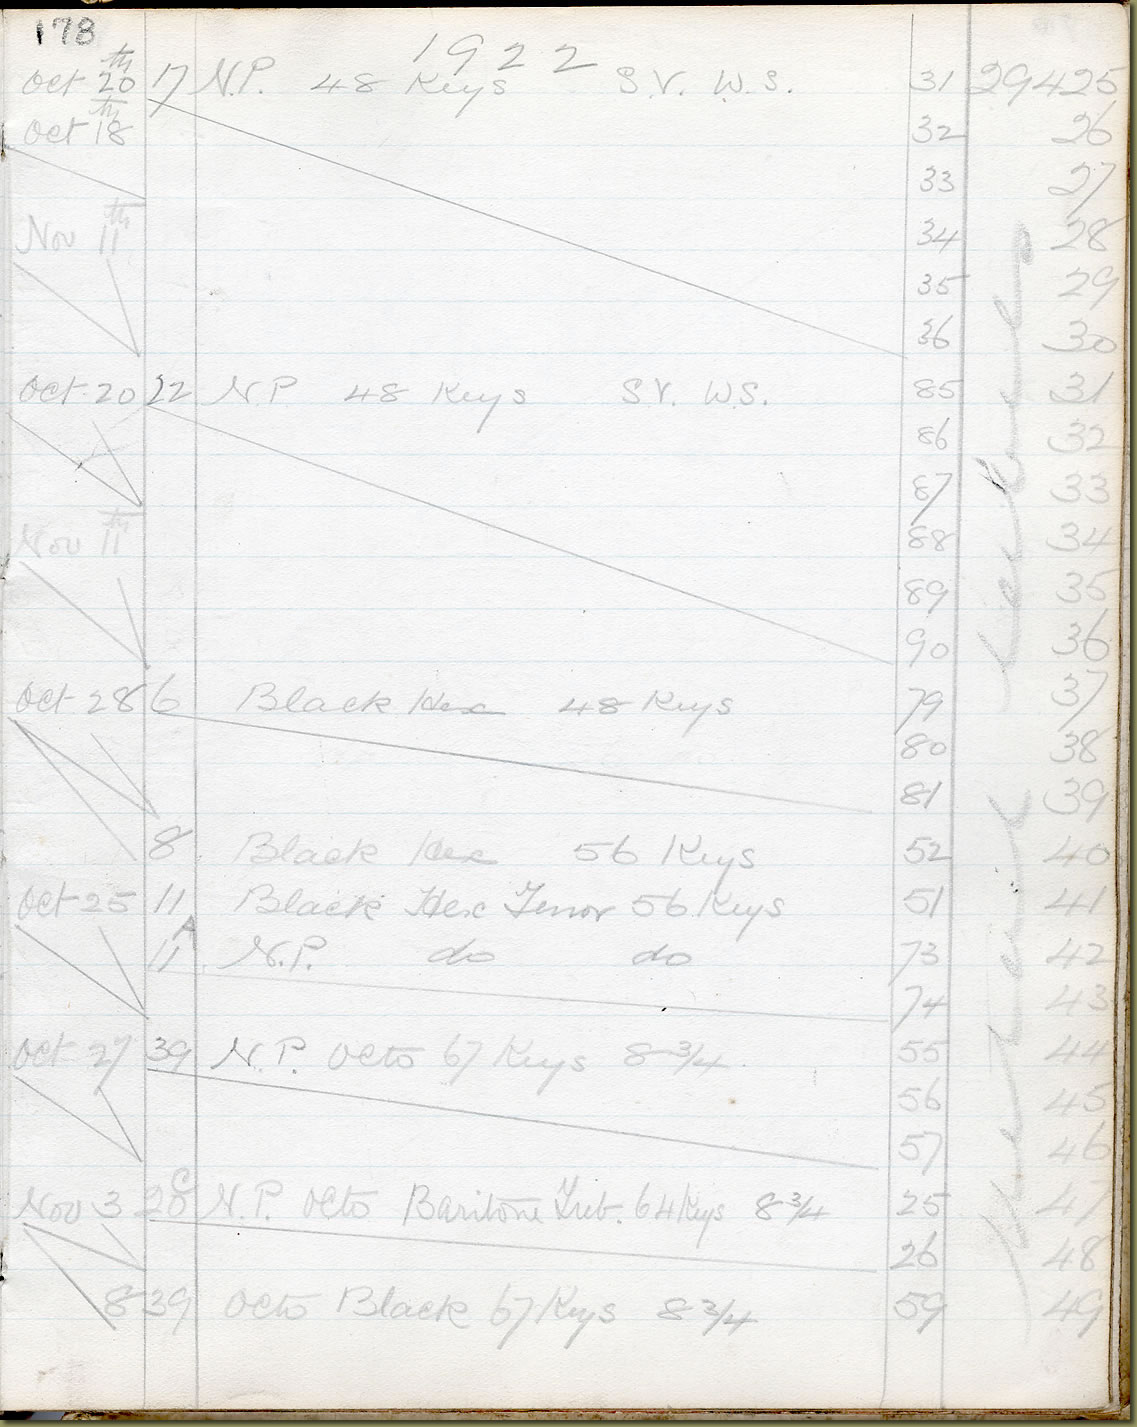 178
1922
Oct 20th 17 N.P. 48 Keys S.V. W.S. 31 29425
Oct 18th 32 26
33 27
Nov 11th 34 28
35 29
36 30
Oct 20 22 N.P 48 Keys S.V. W.S. 85 31
86 32
87 33
Nov 11th 88 34
89 35
90 36
Oct 28 6 Black Hex 48 Keys 79 37
80 38
81 39
8 Black Hex 56 Keys 52 40
Oct 25 11 Black Hex Tenor 56 Keys 51 41
11A N.P. do do 73 42
74 43
Oct 27 39 N.P. Octo 67 Keys 8 3/4 55 44
56 45
57 46
Nov 3 20C N.P. Octo Baritone Treb. 64 Keys 8 3/4 25 47
26 48
8 39 Octo Black 67 Keys 8 3/4 59 49